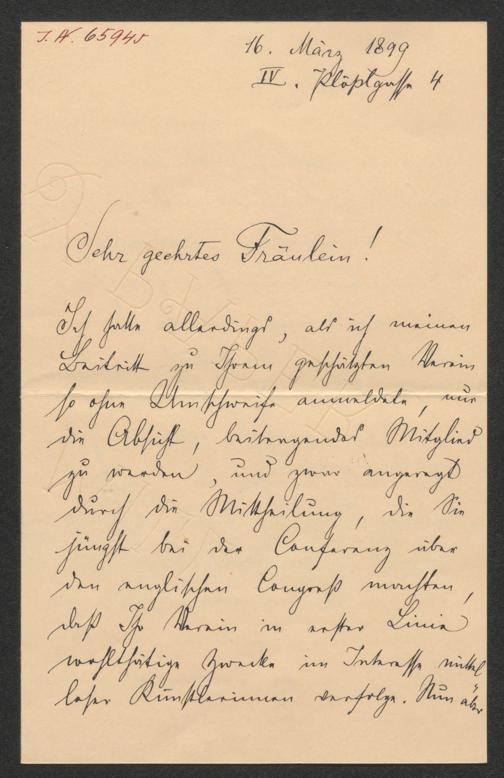 I.N. 65945
16. März 1899
IV. Plößlgasse 4
Sehr geehrtes Fräulein!
Ich hatte allerdings, als ich meinen
Beitritt zu Ihrem geschätzten Verein
so ohne Umschweife anmeldete, nur
die Absicht, beitragendes Mitglied
zu werden, und zwar angeregt
durch die Mittheilung, die Sie
jüngst bei der Conferenz über
den englischen Congreß machten,
daß Ihr Verein in erster Linie
wohlthätige Zwecke im Interesse mittel
loser Künstlerinnen verfolge. Nun aber